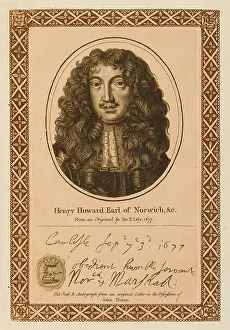 Henry Howard Earl of Norwich, &c.
From an Original by Sir P. Lely, 1677
Carlisle Sep: 23. 1677
obedient humble servant
Nor: & Marshal:
His Seal & Autograph from an original Letter in the Possession of
John Thane